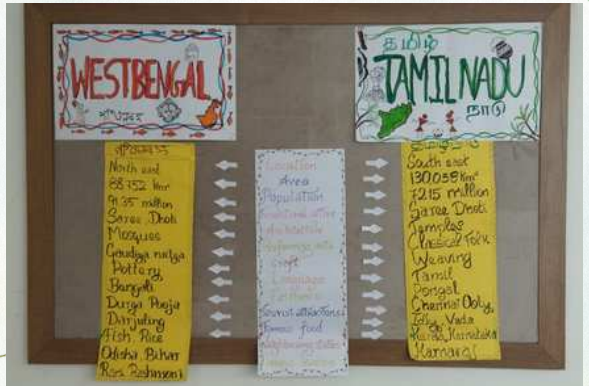 WESTBENGAL
North east
88752 Km²
91.35 million
Saree, Dhoti
Mosques
Gaudiya nritya
Pottery,
Bangali
Durga Pooja
Darjuling
Fish, Rice
Odisha, Bihar
Location
Area
Population
Traditional attire
Architecture
Performing arts
Craft
Language
Festivals
Tourist attractions
Famous food
Neighbouring states
தமிழ்
TAMIL NADU
நாடு
South east
130,058 Km²
72.15 million
Saree Dhoti
Temples
Classical Folk
Weaving
Tamil
Pongal
Chennai Ooty,
Idly, Vada
Kerla, Karnataka
Kamaraj